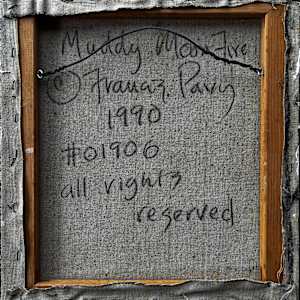 Muddy Moon Fire
© Francis Pavy
1990
#01906
all rights
reserved